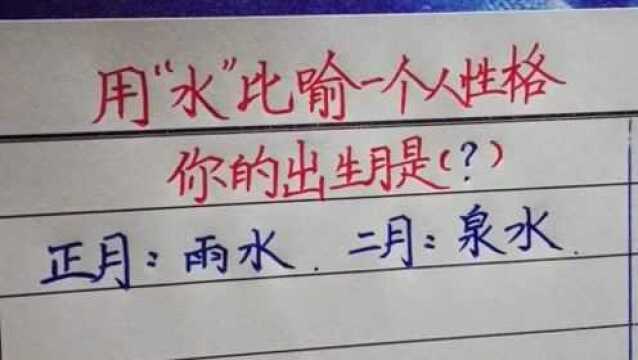 用“水”比喻一个人性格
你的出生月是(?)
正月:雨水. 二月:泉水.